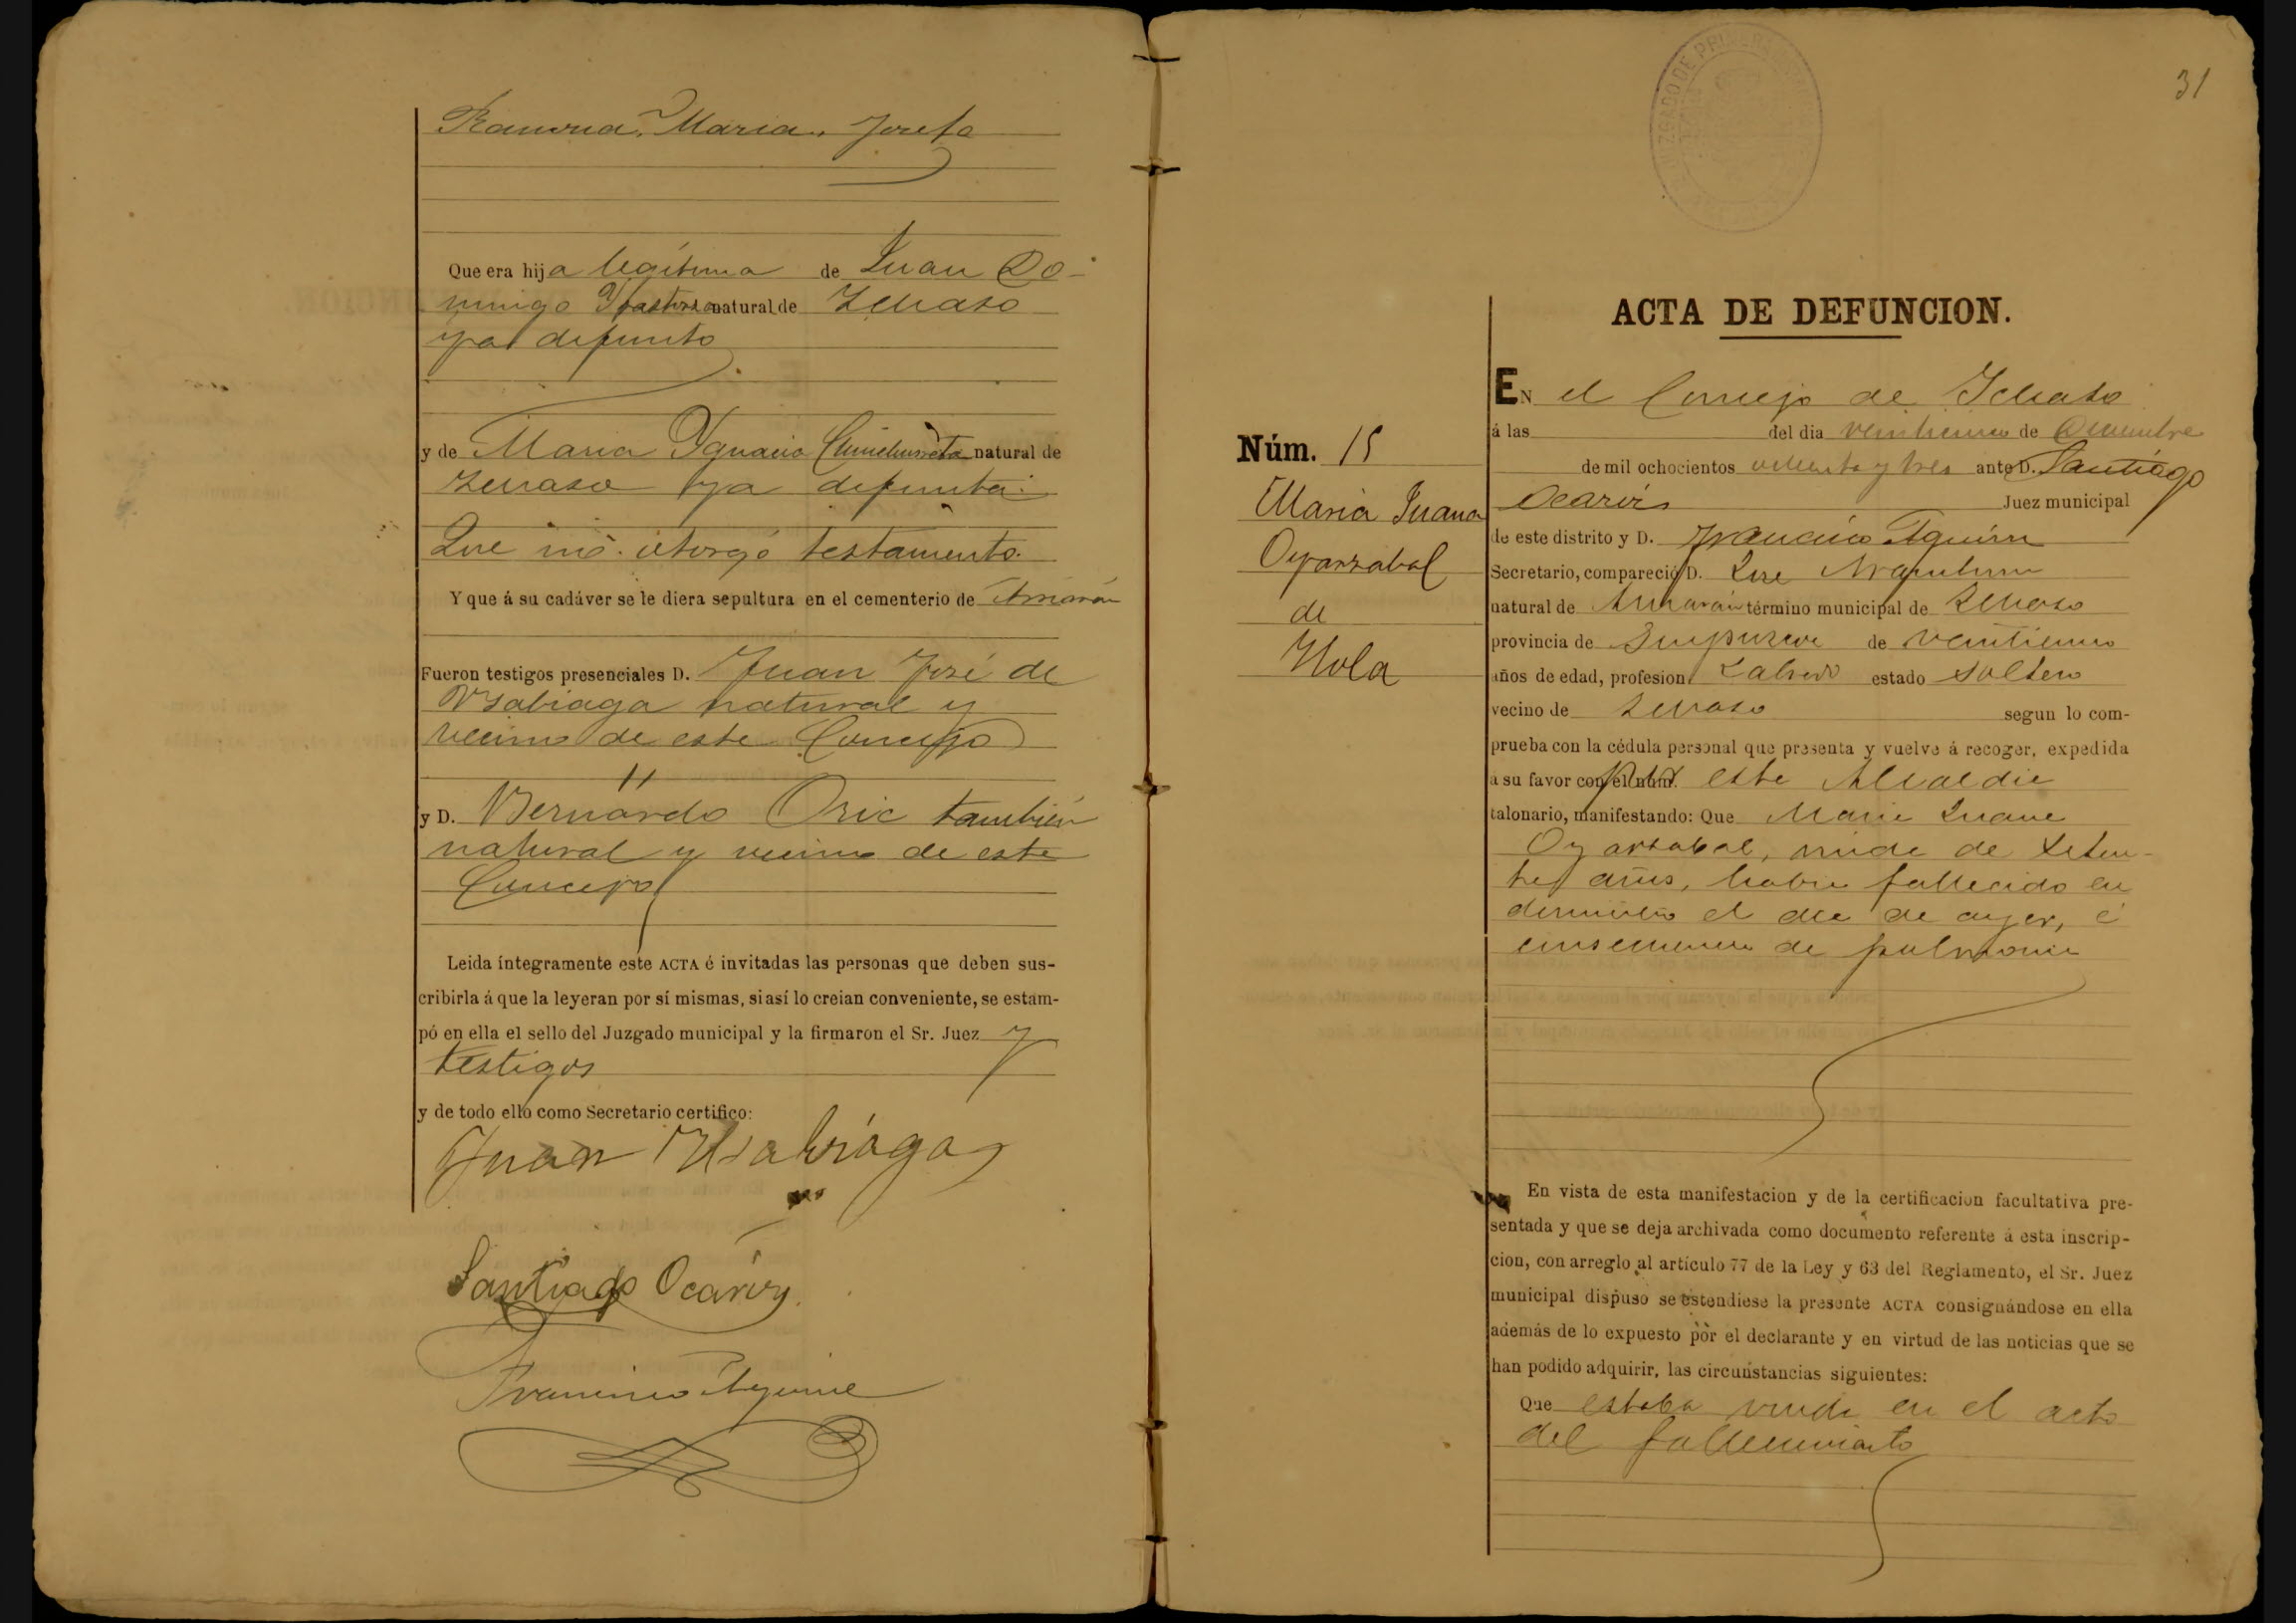 Ramona, Maria, Josefa
Que era hija legítima de Juan Do-
mingo natural de Ichaso
ya difunto
y de Maria Ygnacia natural de
Ichaso ya difunta.
Que no otorgó testamento.
Y que á su cadáver se le diera sepultura en el cementerio de
Fueron testigos presenciales D. Juan José de
Usabiaga natural y
vecino de este Concejo
y D. Bernardo Oria también
natural y vecino de este
Concejo
Leida íntegramente este ACTA é invitadas las personas que deben sus-
cribirla á que la leyeran por sí mismas, si así lo creian conveniente, se estam-
pó en ella el sello del Juzgado municipal y la firmaron el Sr. Juez y
testigos
y de todo ello como Secretario certifico:
Juan Usabiaga
Santiago Ocariz
Francisco Aguirre
31
JUZGADO DE PRIMERA
ACTA DE DEFUNCION.
Núm. 15
Maria Juana
Oyarzabal
de
EN el Concejo de Ichaso
á las del dia de Diciembre
de mil ochocientos ochenta y tres ante D. Santiago
Ocariz Juez municipal
de este distrito y D. Francisco Aguirre
Secretario, compareció D. José
natural de término municipal de Ichaso
provincia de Guipuzcoa de
años de edad, profesion Labrador estado soltero
vecino de Ichaso segun lo com-
prueba con la cédula personal que presenta y vuelve á recoger, expedida
a su favor con el núm. por esta Alcaldia
talonario, manifestando: Que Maria Juana
Oyarzabal, viuda de seten-
ta años, habia fallecido en
domicilio el dia de ayer, á
consecuencia de pulmonia
En vista de esta manifestacion y de la certificacion facultativa pre-
sentada y que se deja archivada como documento referente á esta inscrip-
cion, con arreglo al artículo 77 de la Ley y 63 del Reglamento, el Sr. Juez
municipal dispuso se estendiese la presente ACTA consignándose en ella
además de lo expuesto por el declarante y en virtud de las noticias que se
han podido adquirir, las circunstancias siguientes:
Que estaba viuda en el acto
del fallecimiento